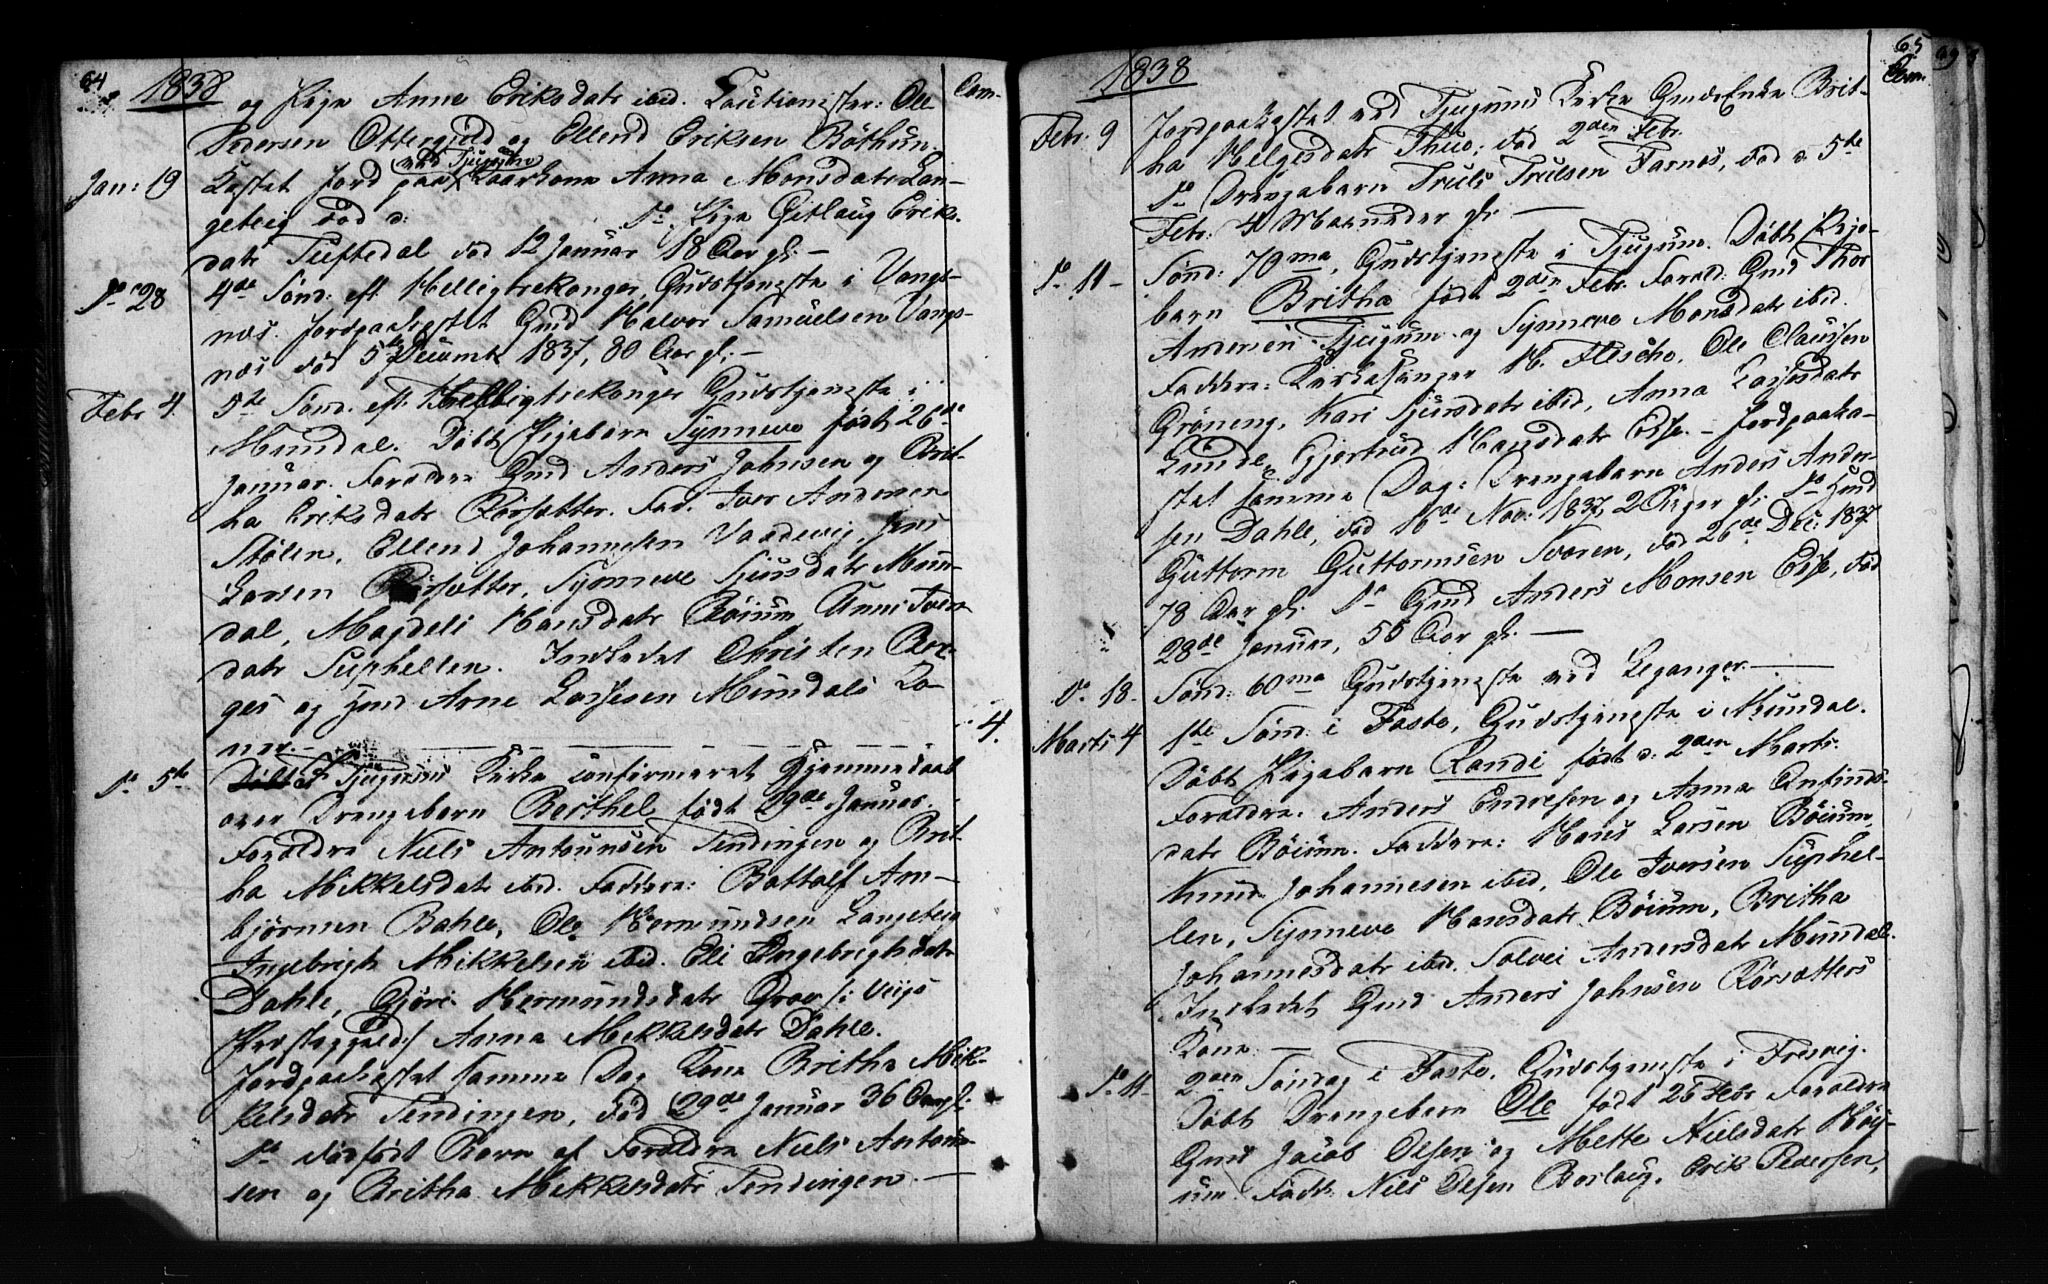 64
1838
Com.
og Pige Anne Eriksdatr ibid. Cautionister: Ole
Pedersen Ottergjeld og Ellend Eriksen Böthun.
Jan: 19 Kastet Jord paa ved Tjugum Kaarkone Anna Monsdatr Lan-
geteig død d: do Pige Gitlaug Eriks-
datr Tuftedal død 12 Januar 18 Aar gl: –
do 28 4de Sønd. eft. Helligtrekonger, Gudstjeneste i Vangs-
nes. Jordpaakastet Gmd Halvor Samuelsen Vangs-
nes død 5te Decembr 1837, 80 Aar gl: –
Febr 4. 5te Sønd. eft. Helligtrekonger Gudstjeneste i
Mundal. Døbt Pigebarn Synneve født 26de
Januar. Forældre Gmd Anders Johnsen og Brit-
ha Eriksdatr Rørsætter. Fad. Iver Andersen
Stølen, Ellend Johannesen Vaadevig, Jens
Larsen Rørsætter, Synneve Sjursdatr Mun-
dal, Magdeli Hansdatr Böium, Anne Iver-
datr Suphellen. Indledet Christen Bor-
ges og Gmd Arne Lassesen Mundals Ko-
ner. –
4.
do 5te Døbt i Tjugum Kirke confirmeret Hjemmedaab
over Drengebarn Berthel født 29de Januar.
Forældre Niels Antounsen Tendingen og Brit-
ha Mikkelsdatr ibid. Faddere: Bottolf Arn-
björnsen Dahle, Ole Hermundsen Langeteig
Ingebrigt Mikkelsen ibid. Eli Engebrigtsdatr
Dahle, Gjöri Hermundsdatr Grov /: Viigs
Præstegjeld:/ Anna Mikkelsdatr Dahle.
Jordpaakastet samme Dag Kone Britha Mik-
kelsdatr Tendingen, død 29de Januar 36 Aar gl:
do dødfødt Barn af Forældre Niels Antoun-
sen og Britha Mikkelsdatr Tendingen. –
65
1838
Com.
Febr. 9 Jordpaakastet ved Tjugums Kirke Gmds Enke Brit-
ha Helgesdatr Thue, død 2den Febr.
do Drengebarn Truls Trulsen Farnes, død d: 5te
Febr. 4 Maaneder gl: –
do 11 – Sønd: 70ma, Gudstjeneste i Tjugum. Døbt Pige-
barn Britha født 2den Febr. Foræld: Gmd Thor
Andersen Tjugum og Synneve Monsdatr ibid.
Faddere: Kirkesanger H. Flesche, Ole Clausen
Gröneng, Kari Sjursdatr ibid, Anna Lassesdatr
Lunde, Gjertrud Hansdatr Esse. – Jordpaaka-
stet samme Dag: Drengebarn Anders Ander-
sen Dahle, død 16de Nov: 1837, 2 Uger gl: do Gmd
Guttorm Guttormsen Svoren, død 26de Dec: 1837
78 Aar gl: do Gmd Anders Monsen Esse, død
28de Januar, 55 Aar gl: –
do 18. Sønd: 60ma Gudstjeneste ved Leganger. –
Marts 4 1ste Sønd: i Faste, Gudstjeneste i Mundal.
Døbt Pigebarn Randi født d: 2den Marts.
Forældre. Anders Endresen og Anna Anfinds-
datr Böium. Faddere: Hans Larsen Böium,
Knud Johannesen ibid, Ole Iversen Suphel-
len, Synneve Hansdatr Böium, Britha
Johannesdatr ibid. Solvei Andersdatr Mundal.
Indledet Gmd Anders Johnsen Rørsætters
Kone. –
do 11. 2den Søndag i Faste, Gudstjeneste i Fresvig.
Døbt Drengebarn Ole født 25 Febr Forældre
Gmd Jacob Olsen og Mette Nielsdatr Höy-
um. Fadd: Niels Olsen Borlaug, Erik Pedersen,